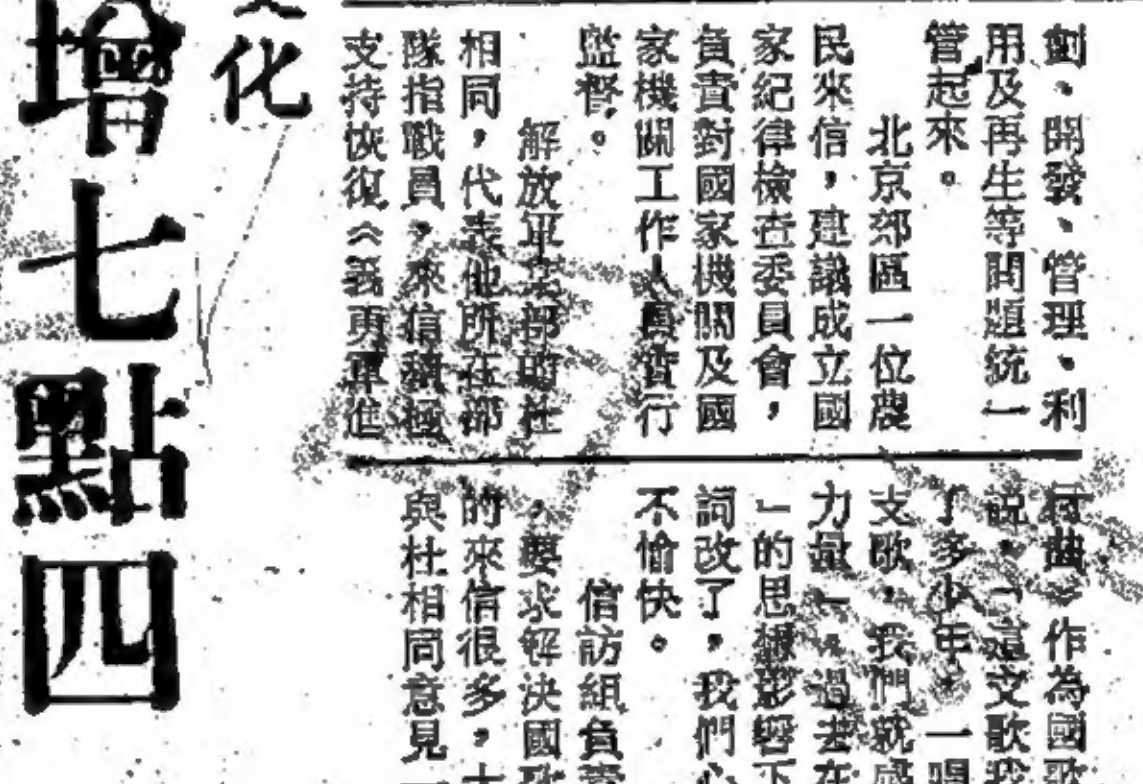 劃、開發、管理、利
用及再生等問題統一
管起來。
北京郊區一位農
民來信，建議成立國
家紀律檢查委員會，
負責對國家機關及國
家機關工作人員實行
監督。
解放軍某部的杜
相同，代表他所在部
隊指戰員，來信積極
支持恢復《義勇軍進
行曲》作為國歌
說，「這支歌我
了多少年，一唱
支歌，我們就感
力量」。過去在
」的思想影響下
詞改了，我們心
不愉快。
信訪組負責
，要求解決國歌
的來信很多，
與杜相同意見
化
增七點四